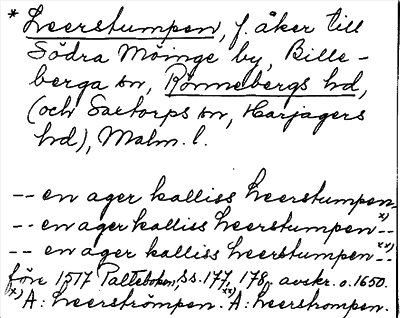 * Leerstumpen, f. åker till
Södra Möinge by, Bille-
berga sn, Rönnebergs hd,
(och Sartorps sn, Harjagers
hd), Malm. l.
-- en ager kalliss Leerstumpen --
-- en ager kalliss Leerstumpen x) --
-- en ager kalliss Leerstumpen xx) --
före 1517 Palteboken, ss. 177, 178, avskr. o. 1650.
x) A: Leerströmpen. xx) A: Leerstrompen.